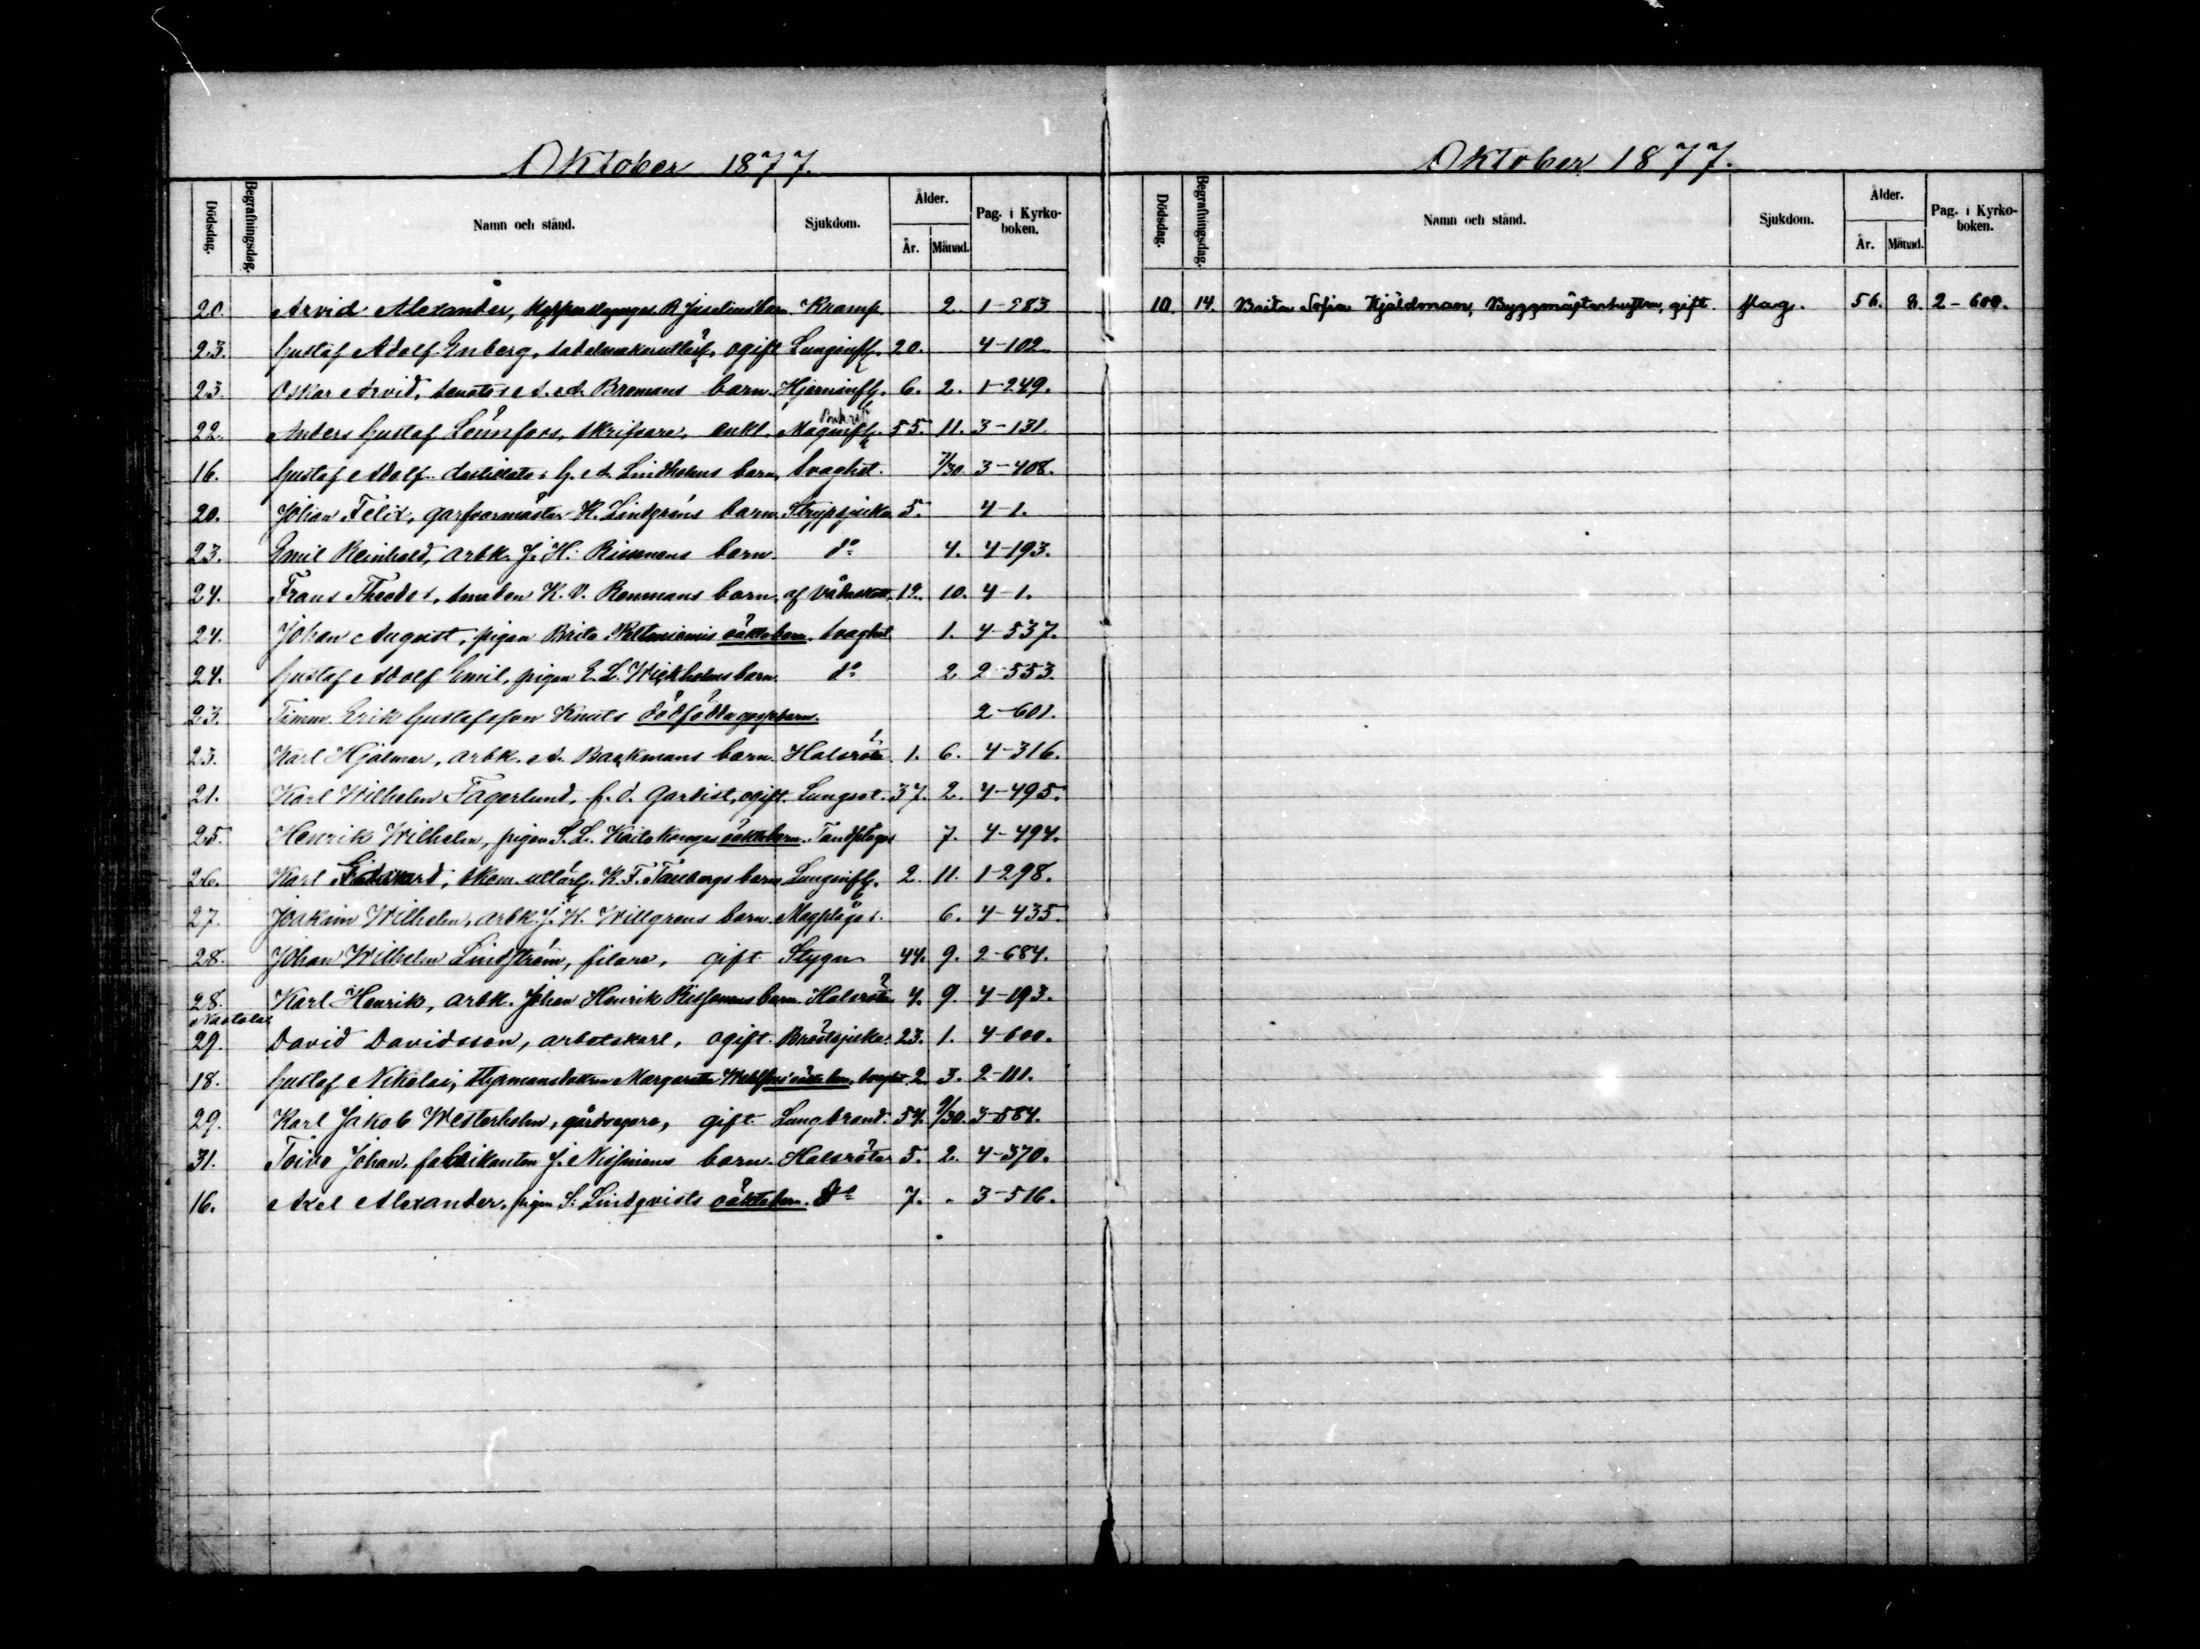 Oktober 1877.
Dödsdag. Begrafningsdag. Namn och stånd. Sjukdom. Ålder. År. Månad. Pag. i Kyrko-boken.
20. Arvid Alexander, barn. Kramp 2. 1-283
23. Gustaf Adolf Enberg, ogift Lunginfl. 20. 4-102
23. Oskar Arvid, Bromans barn. Hjerninfl. 6. 2. 1-249.
22. Anders Gustaf Leinfors, skrifvare, enkl. Maginfl. 55. 11. 3-131
16. Gustaf Adolf, Lindholms barn, Svaghet. 7/30 3-408.
20. Johan Felix, garfvarmästar K. Lindgréns barn. Strypsjuka 5. 4-1.
23. Emil Reinhold, arbk. J. H. Rissanens barn. do 4. 4-193.
24. Frans Theodor, smeden K. V. Renmans barn, af vådaskott. 12. 10. 4-1.
24. Johan August, pigan Brita oäkta barn. Svaghet 1. 4-537.
24. Gustaf Adolf Emil, pigan E. L. Wickholms barn do 2 2-553.
23. Timm. Erik Gustafsson Knuts dödfödda gossebarn. 2-601.
23. Karl Hjalmar, arbk. A. Backmans barn. Halsröta 1. 6. 4-316.
21. Karl Wilhelm Fagerlund, f. d. gardist, ogift. Lungsot. 37. 2. 4-495.
25. Henrik Wilhelm, pigan S. L. oäkta barn. Tandplågor 7. 4-494.
26. Karl Edvard, skom. utlärl. K. F. barn Lunginfl. 2. 11. 1-298.
27. Joakim Wilhelm, arbk. J. W. Willgrens barn. Magplågor. 6. 4-435.
28. Johan Wilhelm Lindström, filare, gift Stygn 44. 9. 2-684.
28. Karl Henrik, arbk. Johan Henrik Rissanens barn. Halsröta 4. 9. 4-193.
29. David Davidsson, arbetskarl, ogift. Bröstsjuka 23. 1. 4-600.
18. Gustaf Nikolai, Margareta oäkta barn, Svaghet 2. 3. 2-111.
29. Karl Jakob Westerholm, gårdsegare, gift. Lungbrand. 54. 9/30. 3-584.
31. Toivo Johan, fabrikanten J. Nissinens barn. Halsröta 5. 2. 4-370.
16. Axel Alexander, pigan S. Lindqvists oäkta barn. do 7. - 3-516.
Oktober 1877.
Dödsdag. Begrafningsdag. Namn och stånd. Sjukdom. Ålder. År. Månad. Pag. i Kyrko-boken.
10. 14. Brita Sofia Kjäldman, Byggmästarhustru, gift. slag. 56. 8. 2-600.